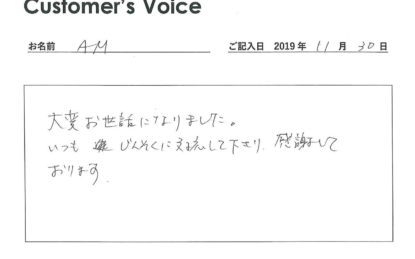 Customer's Voice
お名前 AM ご記入日 2019年 11月 30日
大変お世話になりました。
いつも じんそくに対応して下さり、感謝して
おります。